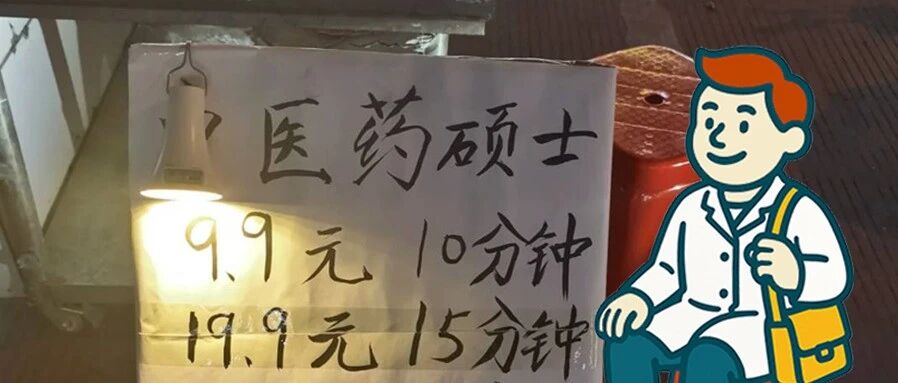 中医药硕士
9.9元 10分钟
19.9元 15分钟